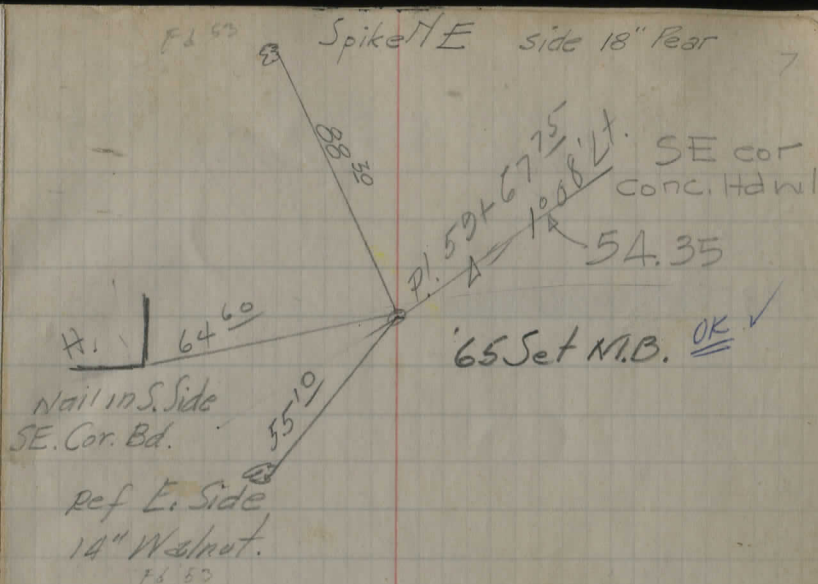 Fd 53
Spike NE side 18" Pear
7
88 30
P.I. 59+67 75
Δ = 1°08' Lt.
SE cor
conc. Hdwl
54.35
H.
64 60
'65 Set M.B. OK ✓
Nail in S. Side
SE. Cor. Bd.
55 10
Ref E. Side
14" Walnut.
Fd 53